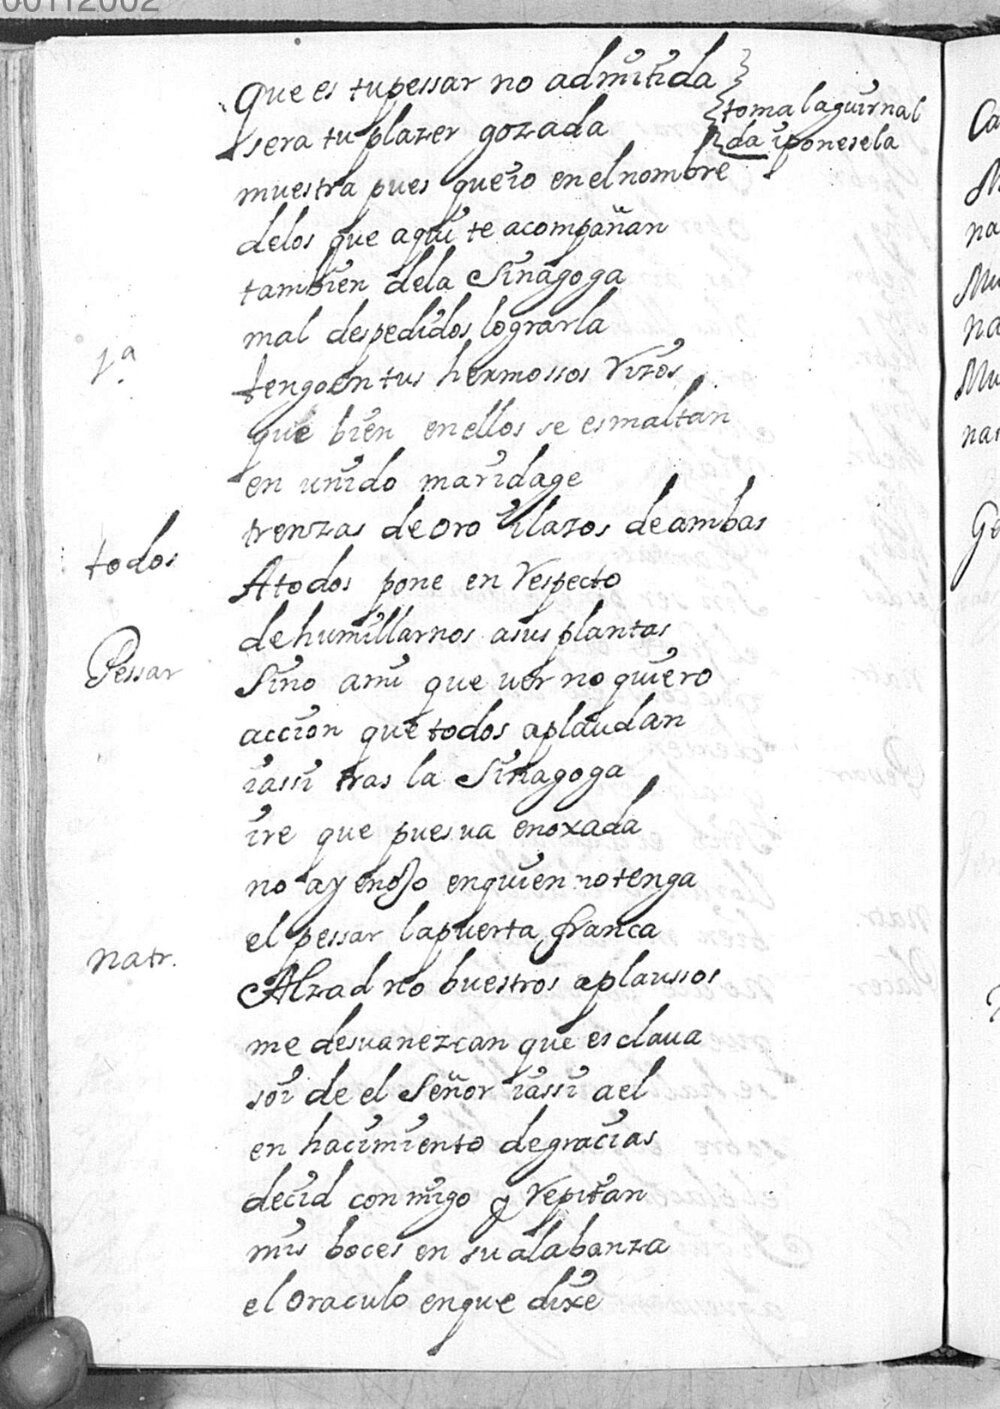 00112002
que es tu pessar no admitida
toma la guirnal
sera tu plazer gozada
da iponesela
muestra pues que io en el nombre
delos que aqui te acompañan
tambien dela Sinagoga
mal despedidos lograrla
1ª
tengo en tus hermossos Rizos
que bien en ellos se esmaltan
en unido maridage
trenzas de oro i lazos de ambas
todos
A todos pone en Respecto
de humillarnos asus plantas
Pessar
Sino ami que ver no quiero
accion que todos aplaudan
iassi tras la Sinagoga
ire que pues va enoxada
no ay enojo en quien no tenga
el pessar la puerta franca
natr.
Alzad no buestros aplaussos
me desvanezcan que esclava
soi de el Señor iassi a el
en hacimiento de gracias
decid conmigo y Repitan
mis boces en su alabanza
el oraculo en que dixe